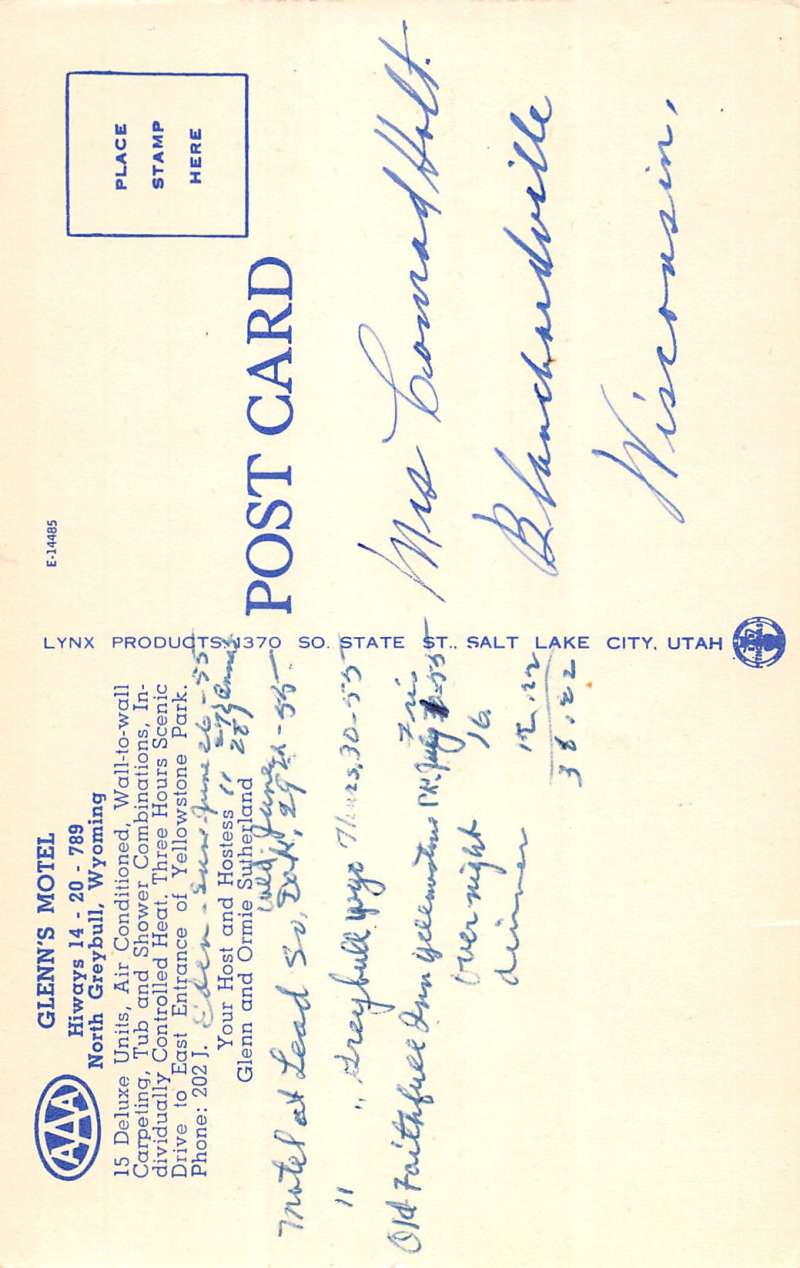 AAA
GLENN'S MOTEL
Hiways 14 - 20 - 789
North Greybull, Wyoming
15 Deluxe Units, Air Conditioned, Wall-to-wall
Carpeting, Tub and Shower Combinations, In-
dividually Controlled Heat. Three Hours Scenic
Drive to East Entrance of Yellowstone Park.
Phone: 202 J.
Eden - Sun June 26-55
Your Host and Hostess
Glenn and Ormie Sutherland
" 27
28
Wed. June
Motel at Lead So. Dak, 29th-55
" " Greybull Wyo Thurs, 30-55
Old Faithfull Inn Yellowstone Pk. July 55
Fri
over night 16.
dinner
38.22
LYNX PRODUCTS, 1370 SO. STATE ST., SALT LAKE CITY, UTAH
E-14485
POST CARD
PLACE
STAMP
HERE
Mrs Conrad Holt.
Blanchardville
Wisconsin,